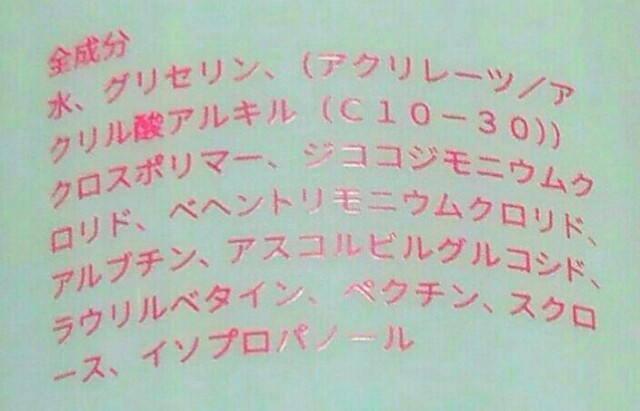 全成分
水、グリセリン、（アクリレーツ／ア
クリル酸アルキル（Ｃ１０－３０））
クロスポリマー、ジココジモニウムク
ロリド、ベヘントリモニウムクロリド、
アルブチン、アスコルビルグルコシド、
ラウリルベタイン、ペクチン、スクロ
ース、イソプロパノール